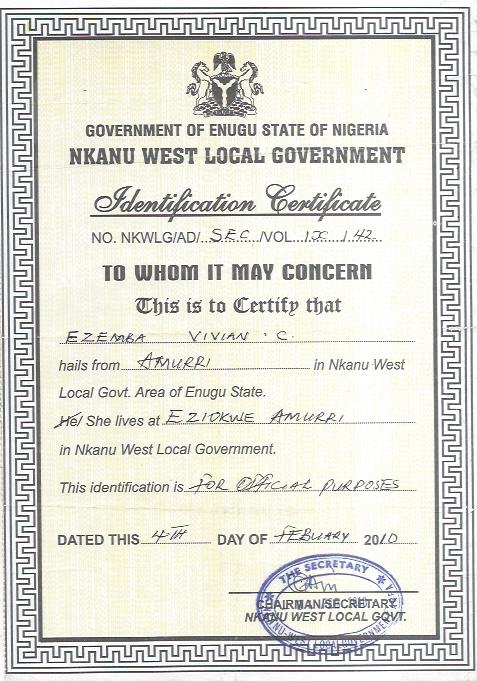 GOVERNMENT OF ENUGU STATE OF NIGERIA
NKANU WEST LOCAL GOVERNMENT
Identification Certificate
NO. NKWLG/AD/ SEC /VOL IX / 42
TO WHOM IT MAY CONCERN
This is to Certify that
EZEMBA VIVIAN . C.
hails from AMURRI in Nkanu West
Local Govt. Area of Enugu State.
He/ She lives at EZIOKWE AMURRI
in Nkanu West Local Government.
This identification is FOR OFFICIAL PURPOSES
DATED THIS 4TH DAY OF FEBUARY 2010
THE SECRETARY
CHAIRMAN/SECRETARY
NKANU WEST LOCAL GOVT.